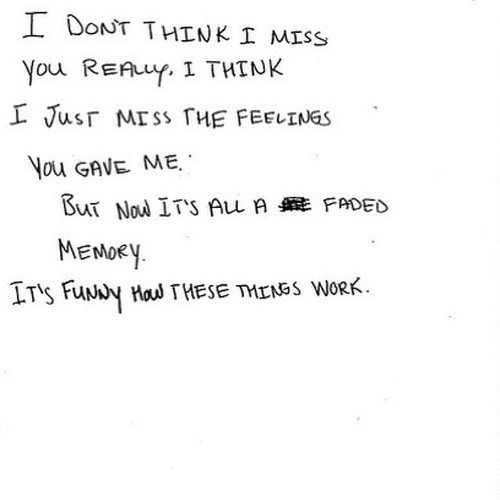 I DON'T THINK I MISS
YOU REALLY, I THINK
I JUST MISS THE FEELINGS
YOU GAVE ME.
BUT NOW IT'S ALL A FADED
MEMORY.
IT'S FUNNY HOW THESE THINGS WORK.